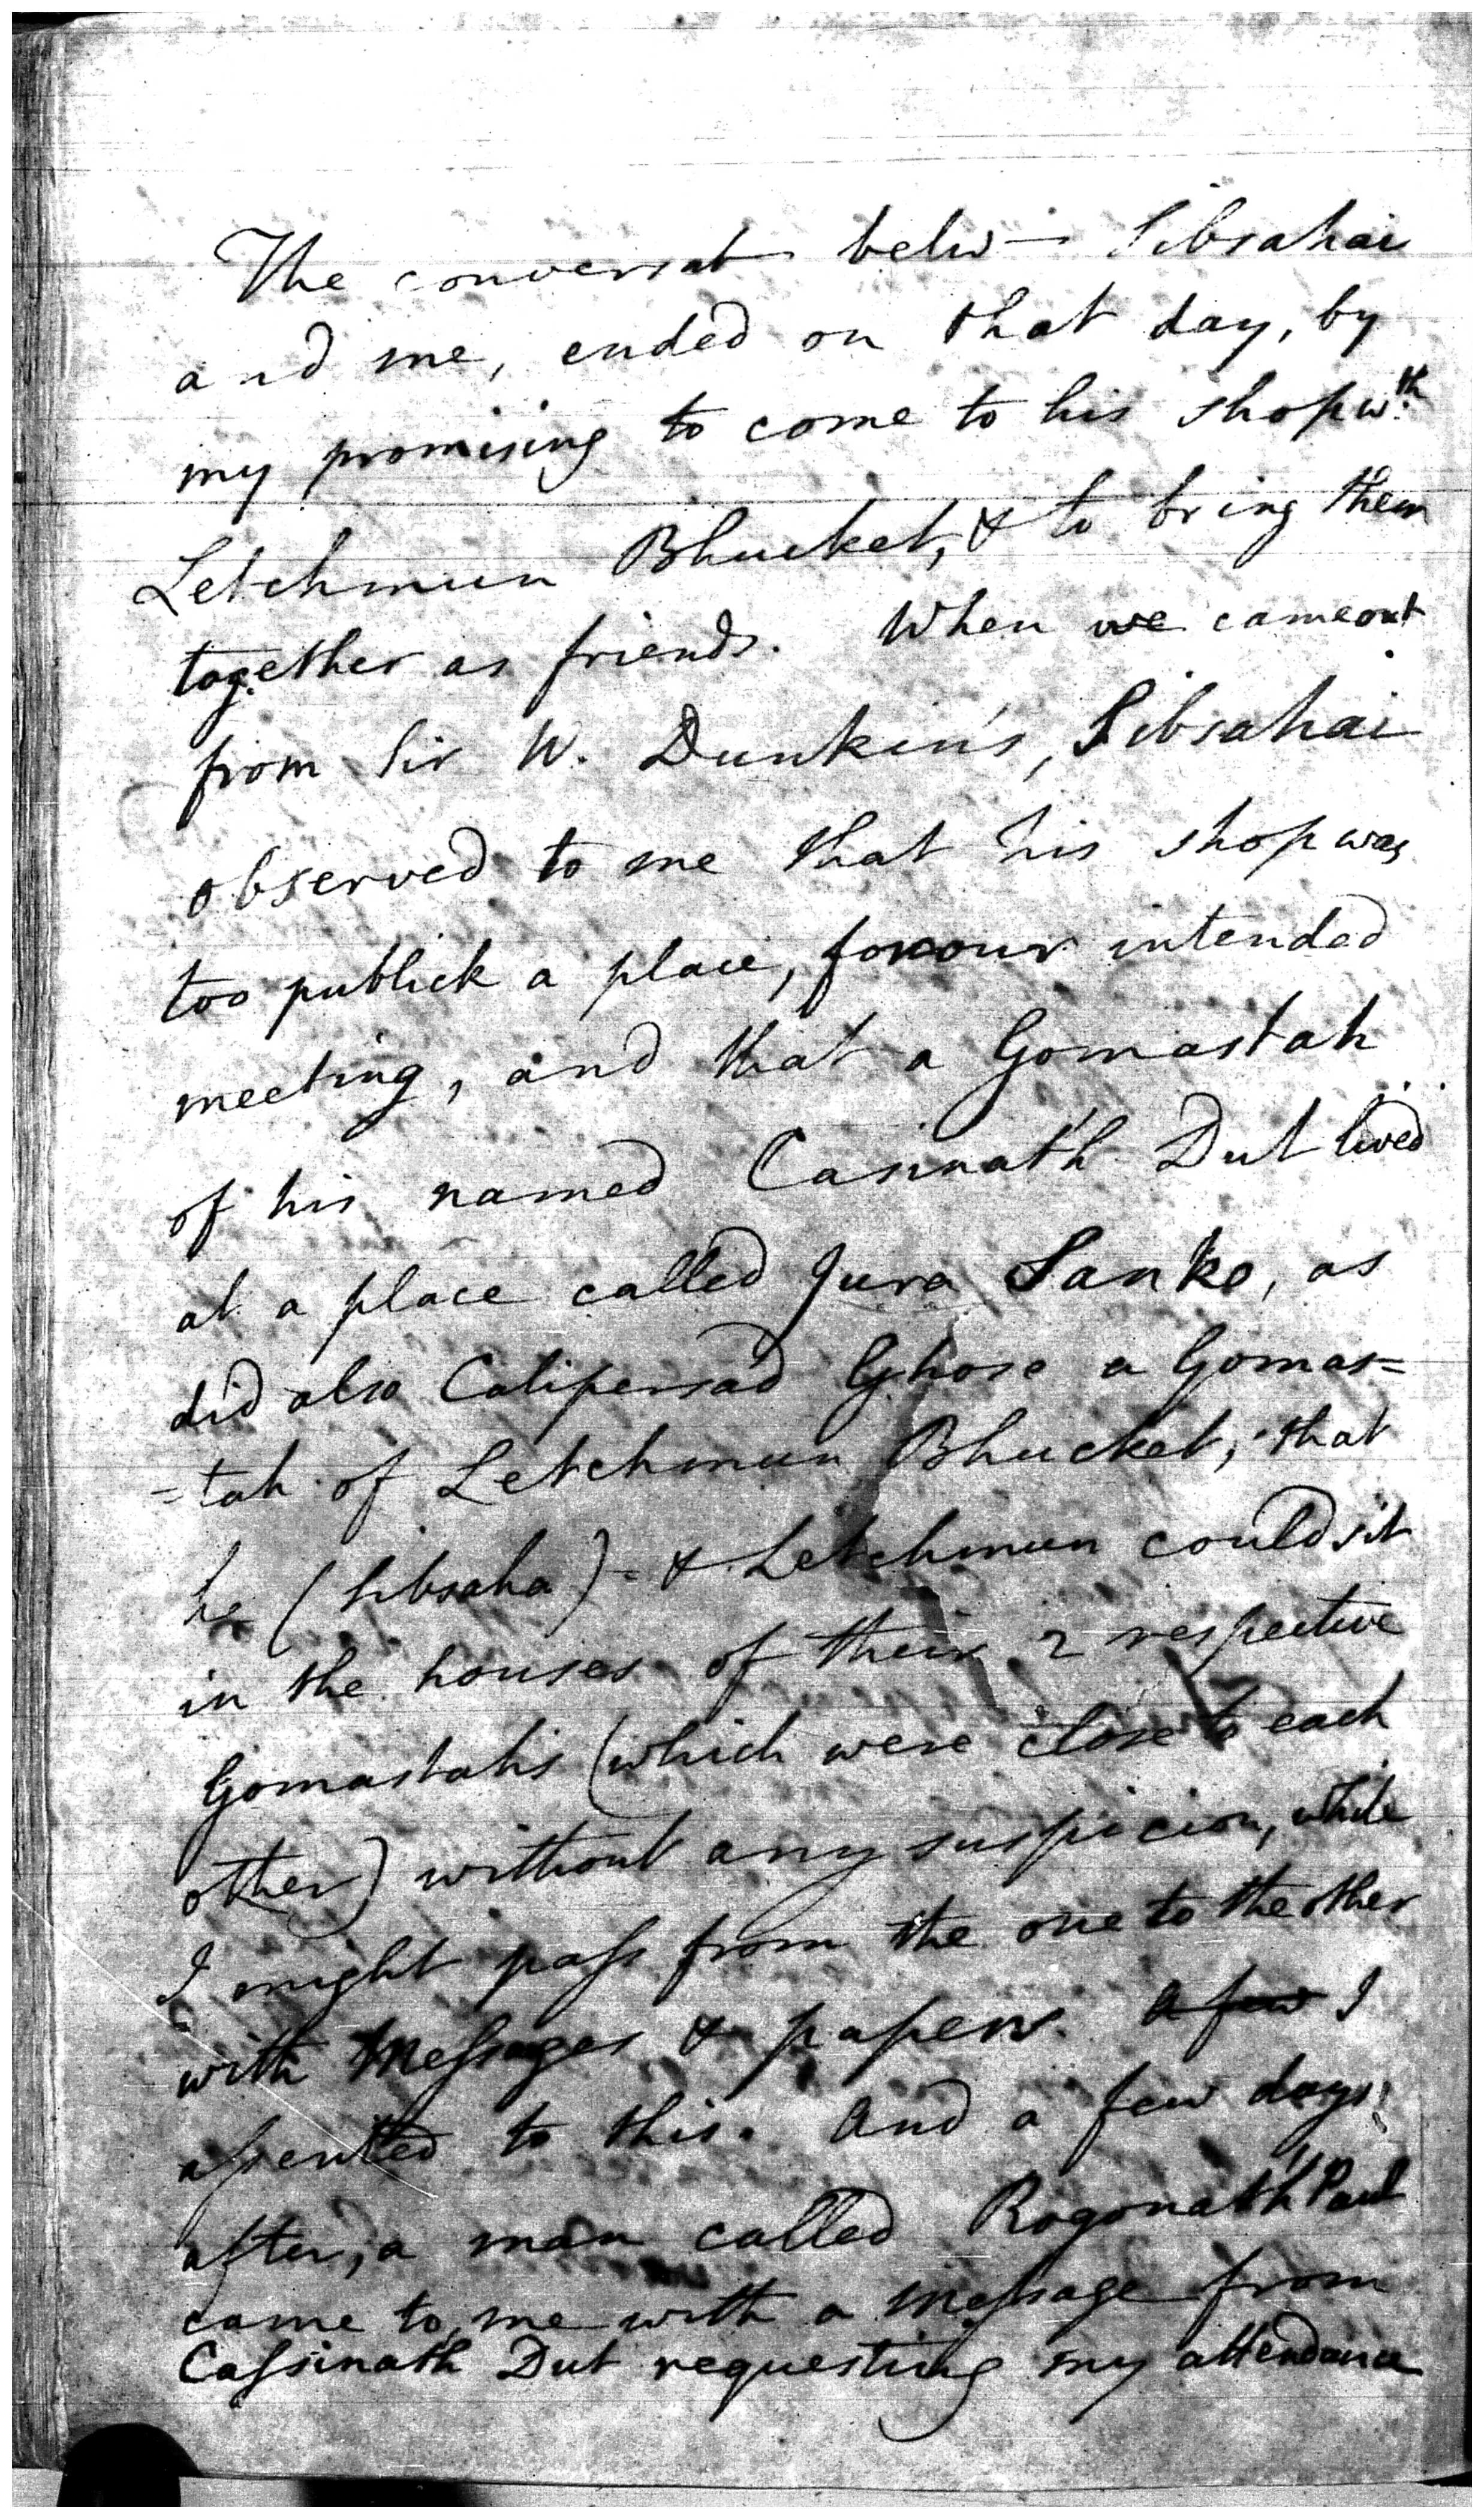 The conversatn betw— Sibsahai
and me, ended on that day, by
my promising to come to his shop wth.
Letchmun Bhucket, & to bring them
together as friends. When we came out
from Sir W. Dunkin's, Sibsahai
observed to me that his shop was
too publick a place, for our intended
meeting, and that a Gomastah
of his named Casinath Dut lived
at a place called Jura Sanko, as
did also Calipersad Ghose a Gomas=
=tah of Letchmun Bhucket, that
he (Sibsaha) & Letchmun could sit
in the houses of their 2 respective
Gomastahs (which were close to each
other) without any suspicion, while
I might pass from the one to the other
with Messages & papers. a few I
assented to this. And a few days
after, a man called Rogonath Paul
came to me with a message from
Cassinath Dut requesting my attendance